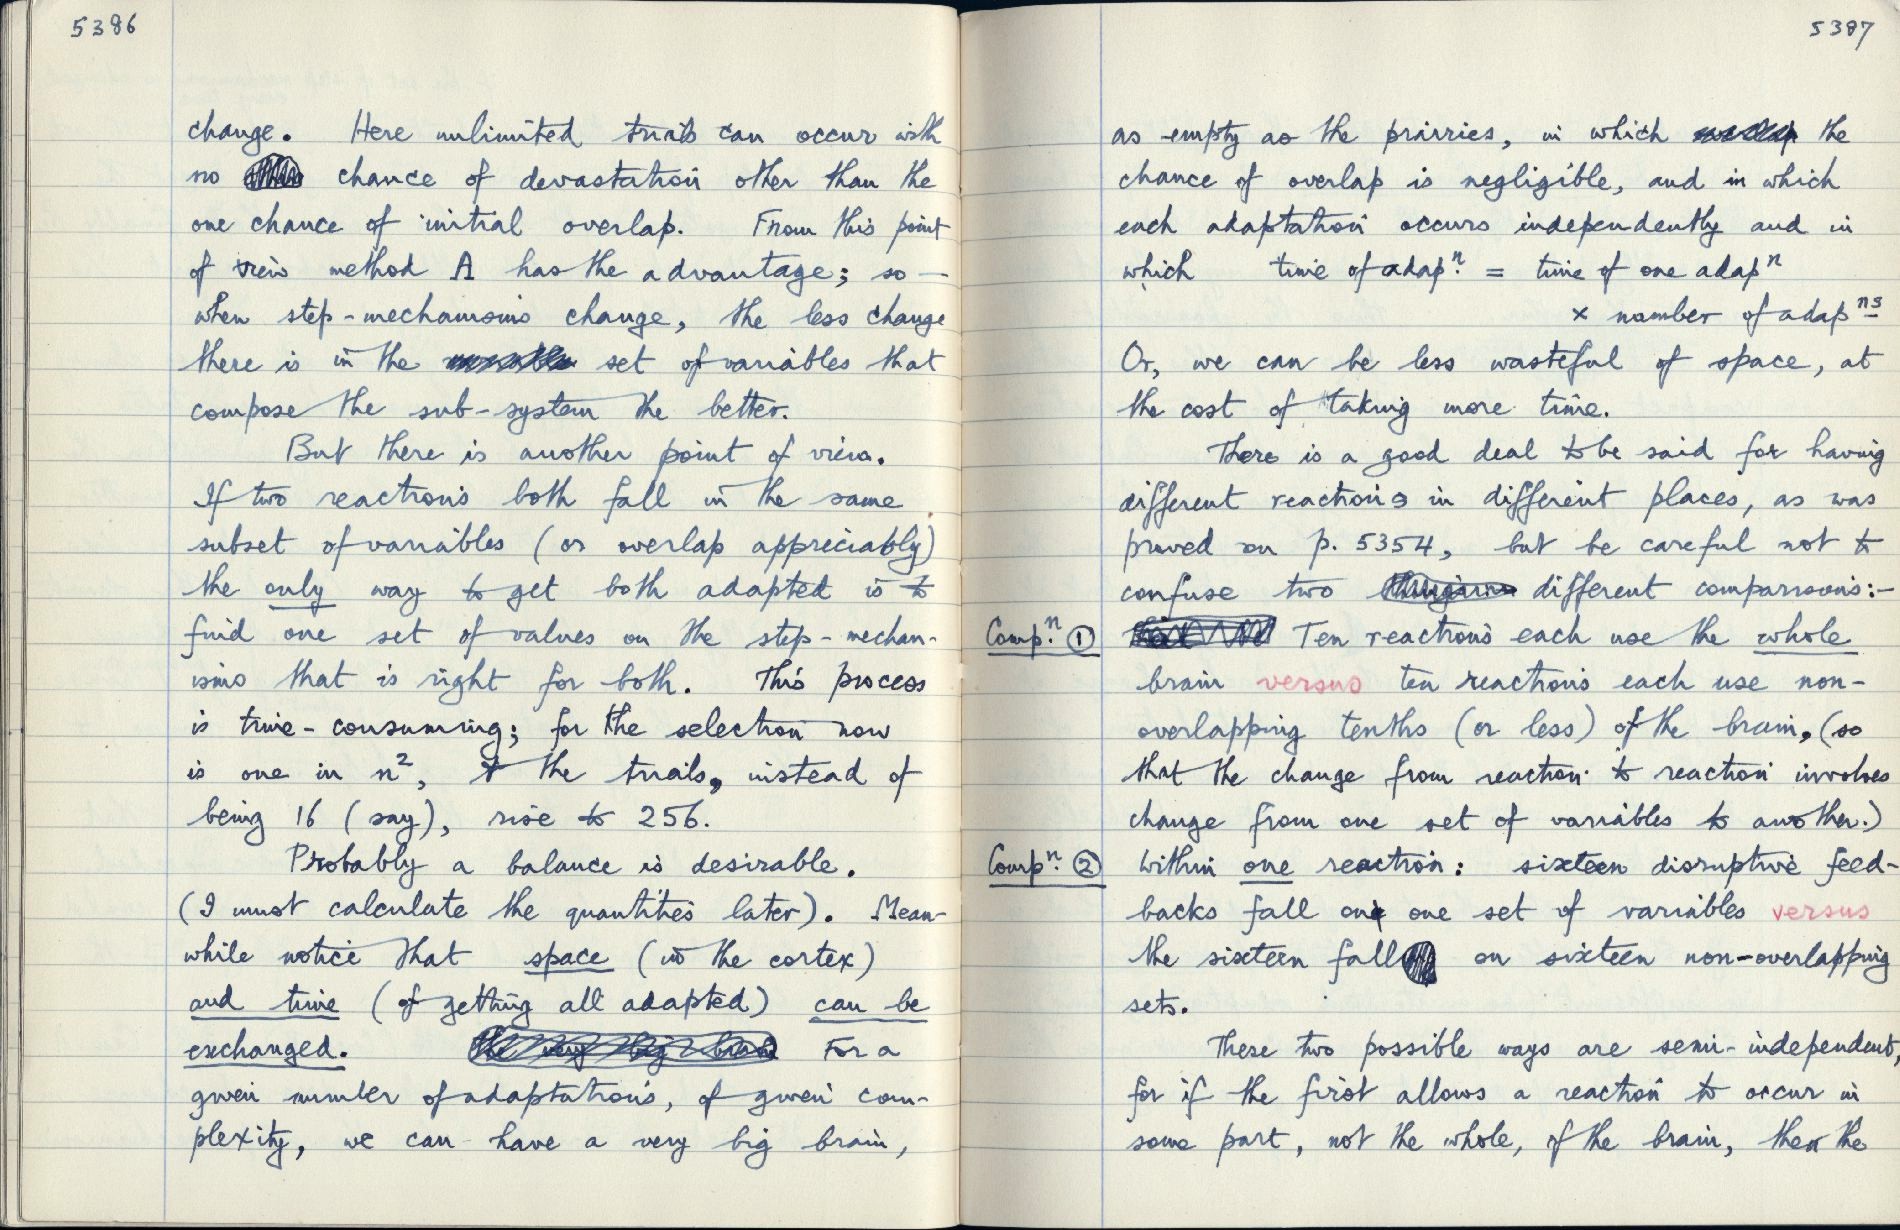 5386
change. Here unlimited trials can occur with
no chance of devastation other than the
one chance of initial overlap. From this point
of view method A has the advantage; so —
when step-mechanisms change, the less change
there is in the set of variables that
compose the sub-system the better.
But there is another point of view.
If two reactions both fall in the same
subset of variables (or overlap appreciably)
the only way to get both adapted is to
find one set of values on the step-mechan-
isms that is right for both. This process
is time-consuming; for the selection now
is one in n², & the trials, instead of
being 16 (say), rise to 256.
Probably a balance is desirable.
(I must calculate the quantities later). Mean-
while notice that space (in the cortex)
and time (of getting all adapted) can be
exchanged. For a
given number of adaptations, of given com-
plexity, we can have a very big brain,
5387
as empty as the prairies, in which the
chance of overlap is negligible, and in which
each adaptation occurs independently and in
which time of adapⁿ. = time of one adapⁿ
× number of adapⁿˢ
Or, we can be less wasteful of space, at
the cost of taking more time.
There is a good deal to be said for having
different reactions in different places, as was
proved on p. 5354, but be careful not to
confuse two different comparisons:-
Compⁿ. ① Ten reactions each use the whole
brain versus ten reactions each use non-
overlapping tenths (or less) of the brain, (so
that the change from reaction to reaction involves
change from one set of variables to another.)
Compⁿ. ② Within one reaction: sixteen disruptive feed-
backs fall on one set of variables versus
the sixteen fall on sixteen non-overlapping
sets.
These two possible ways are semi-independent,
for if the first allows a reaction to occur in
some part, not the whole, of the brain, then the